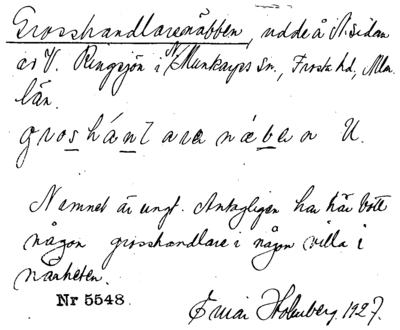 Grosshandlarenäbben, udde å N. sidan
av V. Ringsjön i N. Munkarps sn., Frosta hd, Mlm.
län.
groshánlarenäben U.
Namnet är ungt. Antagligen har här bott
någon grosshandlare i någon villa i
närheten.
Nr 5548
Einar Holmberg 1927.